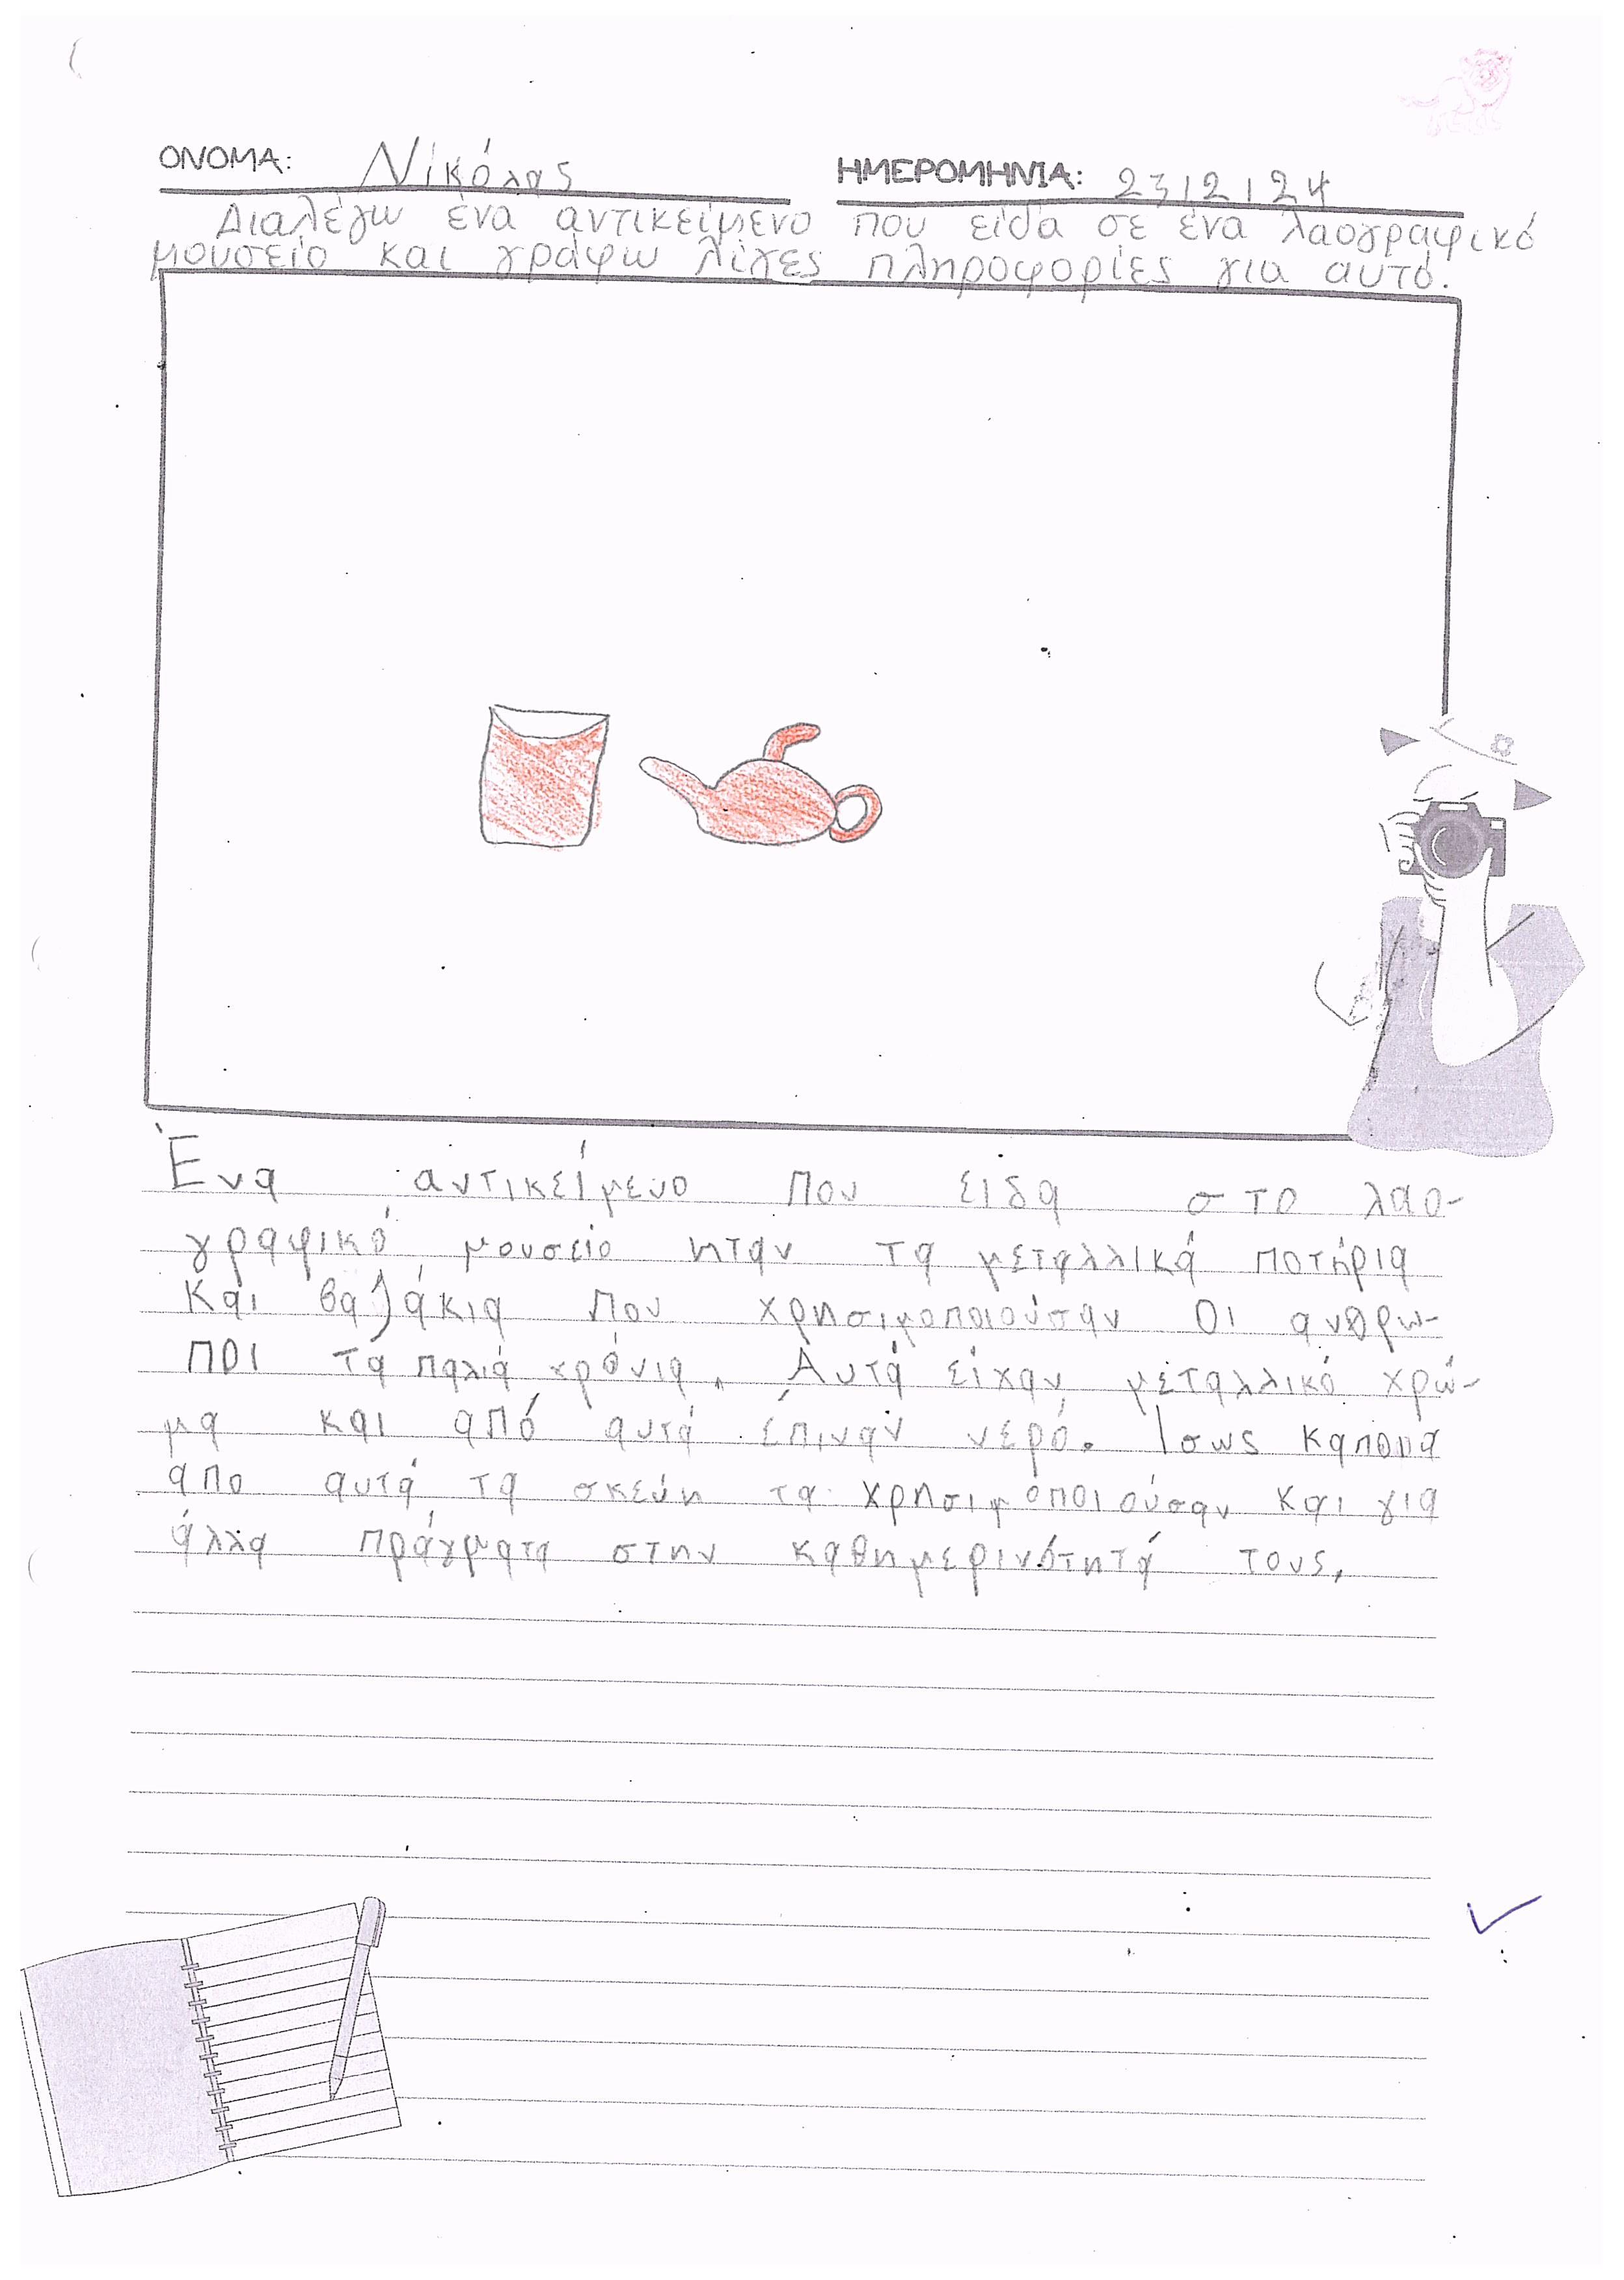 ΟΝΟΜΑ: Νικόλας ΗΜΕΡΟΜΗΝΙΑ: 23/2/24
Διαλέγω ένα αντικείμενο που είδα σε ένα λαογραφικό
μουσείο και γράφω λίγες πληροφορίες για αυτό.
Ένα αντικείμενο που ειδα στο λαο-
γραφικό μουσείο ηταν τα μεταλλικά ποτήρια
και βαζάκια που χρησιμοποιούσαν οι ανθρω-
ποι τα παλιά χρόνια. Αυτά είχαν μεταλλικό χρώ-
μα και από αυτά έπιναν νερό. Ισως καποια
απο αυτά τα σκεύη τα χρησιμοποιούσαν και για
άλλα πράγματα στην καθημερινότητά τους.